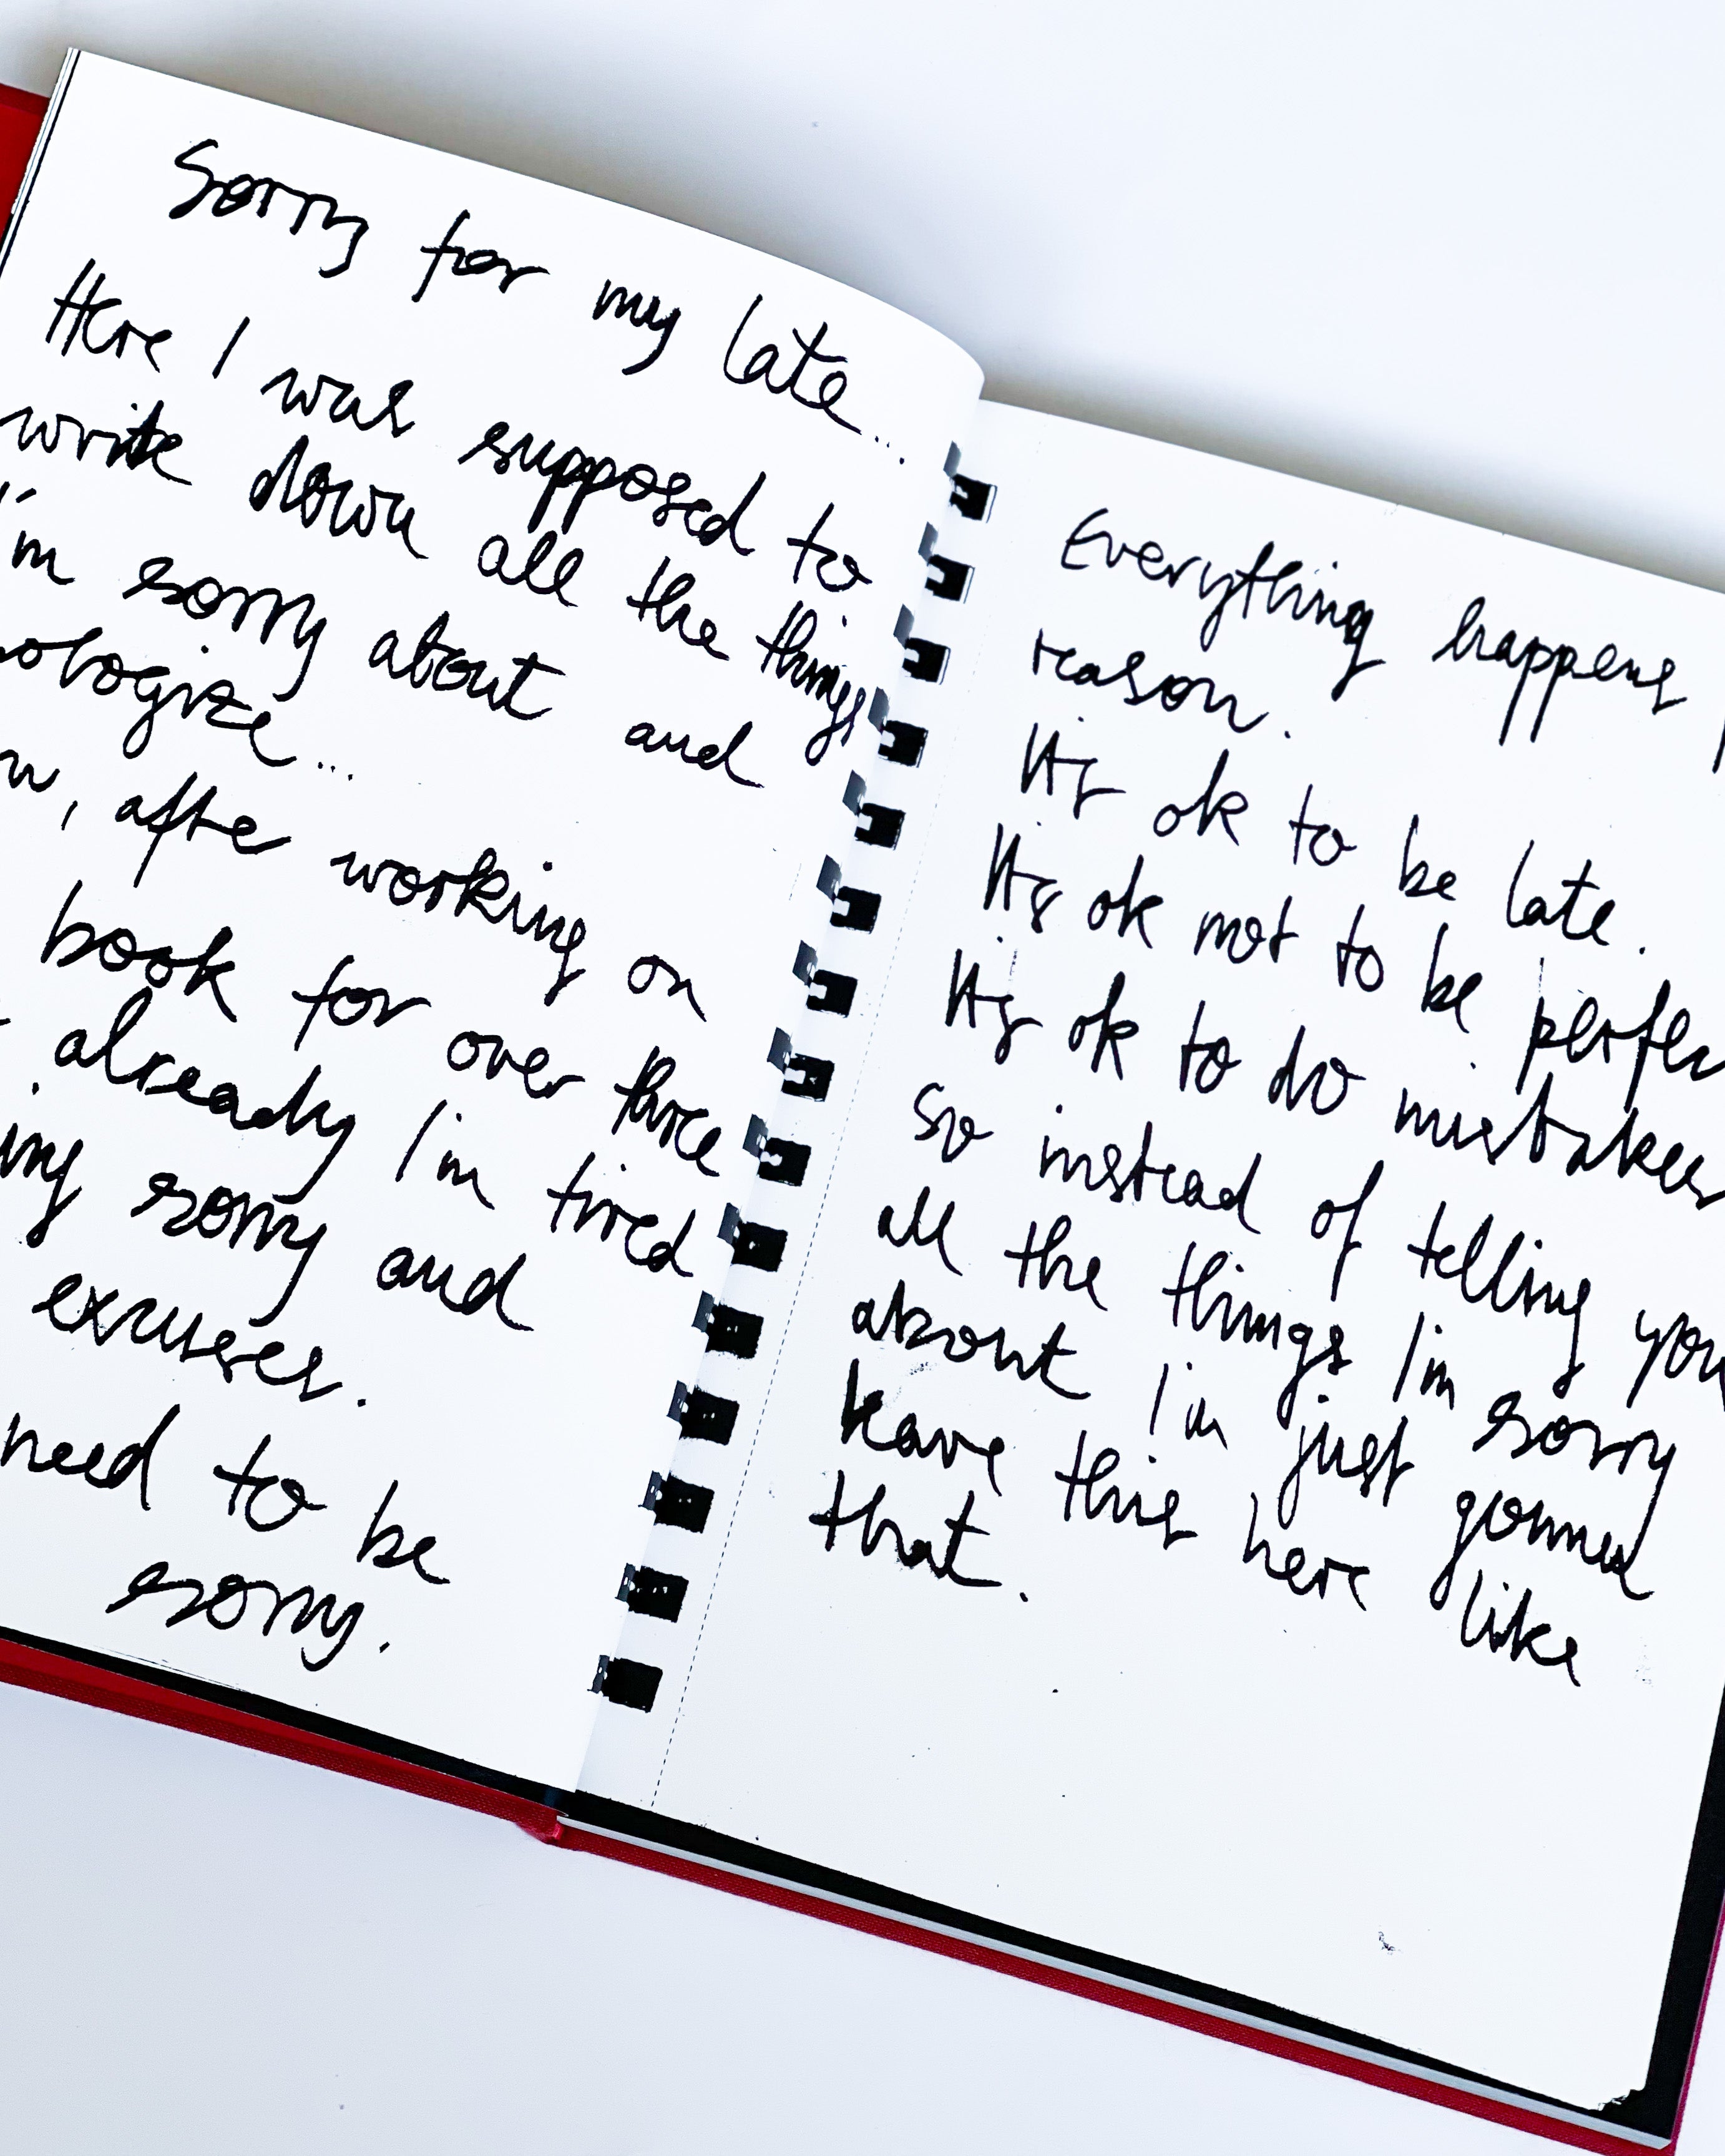 Sorry for my late...
Here I was supposed to
write down all the things
I'm sorry about and
ologize...
w, afte working on
book for over three
already I'm tired
ing sorry and
excuses.
need to be
sorry.
Everything happens
reason.
It's ok to be late.
It's ok not to be perfec
It's ok to do mistakes
so instead of telling you
all the things I'm sorry
about I'm just gonna
leave this here like
that.